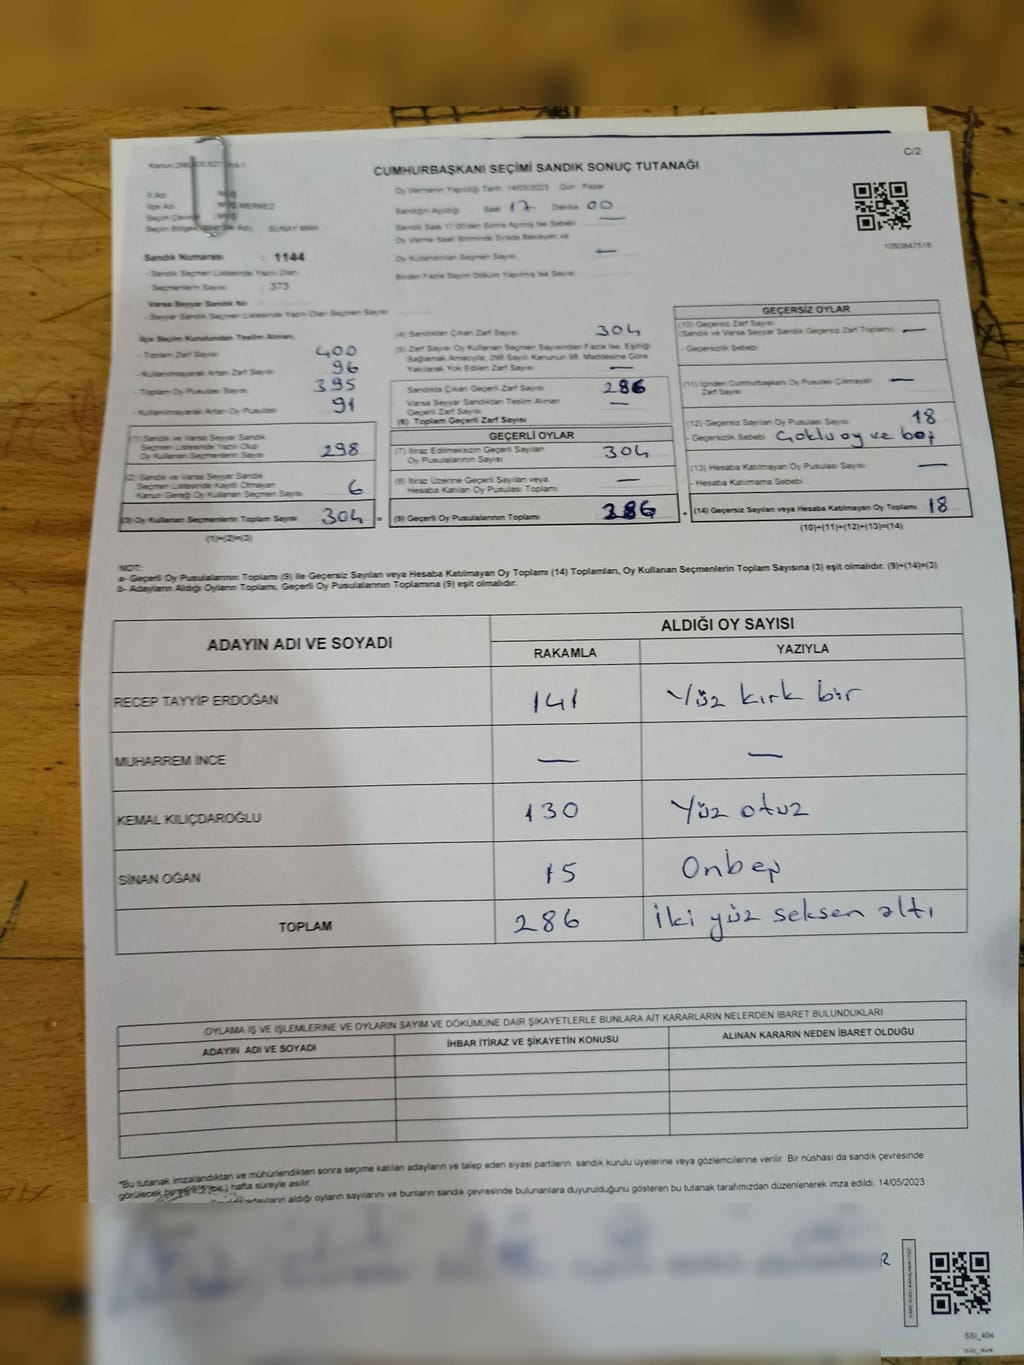 C/2
CUMHURBAŞKANI SEÇİMİ SANDIK SONUÇ TUTANAĞI
Oy Vermenin Yapıldığı Tarih 14/05/2023 Gün Pazar
Sandığın Açıldığı Saat 17 Dakika 00
Sandık Saat 17.00'den Sonra Açılmış İse Sebebi —
Oy Verme Saati Bitiminde Sırada Bekleyen ve
Oy Kullandırılan Seçmen Sayısı —
Birden Fazla Sayım Döküm Yapılmış İse Sayısı
1093847518
İl Adı
İlçe Adı MERKEZ
Seçim Çevresi
SUNAY MAH.
Sandık Numarası : 1144
- Sandık Seçmen Listesinde Yazılı Olan
Seçmenlerin Sayısı : 373
Varsa Seyyar Sandık No
- Seyyar Sandık Seçmen Listesinde Yazılı Olan Seçmen Sayısı
İlçe Seçim Kurulundan Teslim Alınan;
- Toplam Zarf Sayısı 400
- Kullanılmayarak Artan Zarf Sayısı 96
- Toplam Oy Pusulası Sayısı 395
- Kullanılmayarak Artan Oy Pusulası 91
(1) Sandık ve Varsa Seyyar Sandık
Seçmen Listesinde Yazılı Olup
Oy Kullanan Seçmenlerin Sayısı 298
(2) Sandık ve Varsa Seyyar Sandık
Seçmen Listesinde Kayıtlı Olmayan
Kanun Gereği Oy Kullanan Seçmen Sayısı 6
(3) Oy Kullanan Seçmenlerin Toplam Sayısı 304 =
(1)+(2)=(3)
(4) Sandıktan Çıkan Zarf Sayısı 304
(5) Zarf Sayısı Oy Kullanan Seçmen Sayısından Fazla İse, Eşitliği
Sağlamak Amacıyla, 298 Sayılı Kanunun 98. Maddesine Göre
Yakılarak Yok Edilen Zarf Sayısı —
Sandıkta Çıkan Geçerli Zarf Sayısı 286
Varsa Seyyar Sandıktan Teslim Alınan
Geçerli Zarf Sayısı —
(6) Toplam Geçerli Zarf Sayısı
GEÇERLİ OYLAR
(7) İtiraz Edilmeksizin Geçerli Sayılan
Oy Pusulalarının Sayısı 304
(8) İtiraz Üzerine Geçerli Sayılan veya
Hesaba Katılan Oy Pusulası Toplamı —
(9) Geçerli Oy Pusulalarının Toplamı 386 +
GEÇERSİZ OYLAR
(10) Geçersiz Zarf Sayısı
(Sandık ve Varsa Seyyar Sandık Geçersiz Zarf Toplamı) —
- Geçersizlik Sebebi
(11) İçinden Cumhurbaşkanı Oy Pusulası Çıkmayan
Zarf Sayısı —
(12) Geçersiz Sayılan Oy Pusulası Sayısı 18
- Geçersizlik Sebebi Çoklu oy ve boş
(13) Hesaba Katılmayan Oy Pusulası Sayısı —
- Hesaba Katılmama Sebebi
(14) Geçersiz Sayılan veya Hesaba Katılmayan Oy Toplamı 18
(10)+(11)+(12)+(13)=(14)
NOT:
a- Geçerli Oy Pusulalarının Toplamı (9) ile Geçersiz Sayılan veya Hesaba Katılmayan Oy Toplamı (14) Toplamları, Oy Kullanan Seçmenlerin Toplam Sayısına (3) eşit olmalıdır. (9)+(14)=(3)
b- Adayların Aldığı Oyların Toplamı, Geçerli Oy Pusulalarının Toplamına (9) eşit olmalıdır.
ADAYIN ADI VE SOYADI
ALDIĞI OY SAYISI
RAKAMLA YAZIYLA
RECEP TAYYİP ERDOĞAN 141 Yüz kırk bir
MUHARREM İNCE — —
KEMAL KILIÇDAROĞLU 130 Yüz otuz
SİNAN OĞAN 15 Onbeş
TOPLAM 286 İki yüz seksen altı
OYLAMA İŞ VE İŞLEMLERİNE VE OYLARIN SAYIM VE DÖKÜMÜNE DAİR ŞİKAYETLERLE BUNLARA AİT KARARLARIN NELERDEN İBARET BULUNDUKLARI
ADAYIN ADI VE SOYADI İHBAR İTİRAZ VE ŞİKAYETİN KONUSU ALINAN KARARIN NEDEN İBARET OLDUĞU
*Bu tutanak imzalandıktan ve mühürlendikten sonra seçime katılan adayların ve talep eden siyasi partilerin sandık kurulu üyelerine veya gözlemcilerine verilir. Bir nüshası da sandık çevresinde
görülecek bir hafta süreyle asılır.
adayların aldığı oyların sayılarını ve bunların sandık çevresinde bulunanlara duyurulduğunu gösteren bu tutanak tarafımızdan düzenlenerek imza edildi. 14/05/2023
R
SSI_404